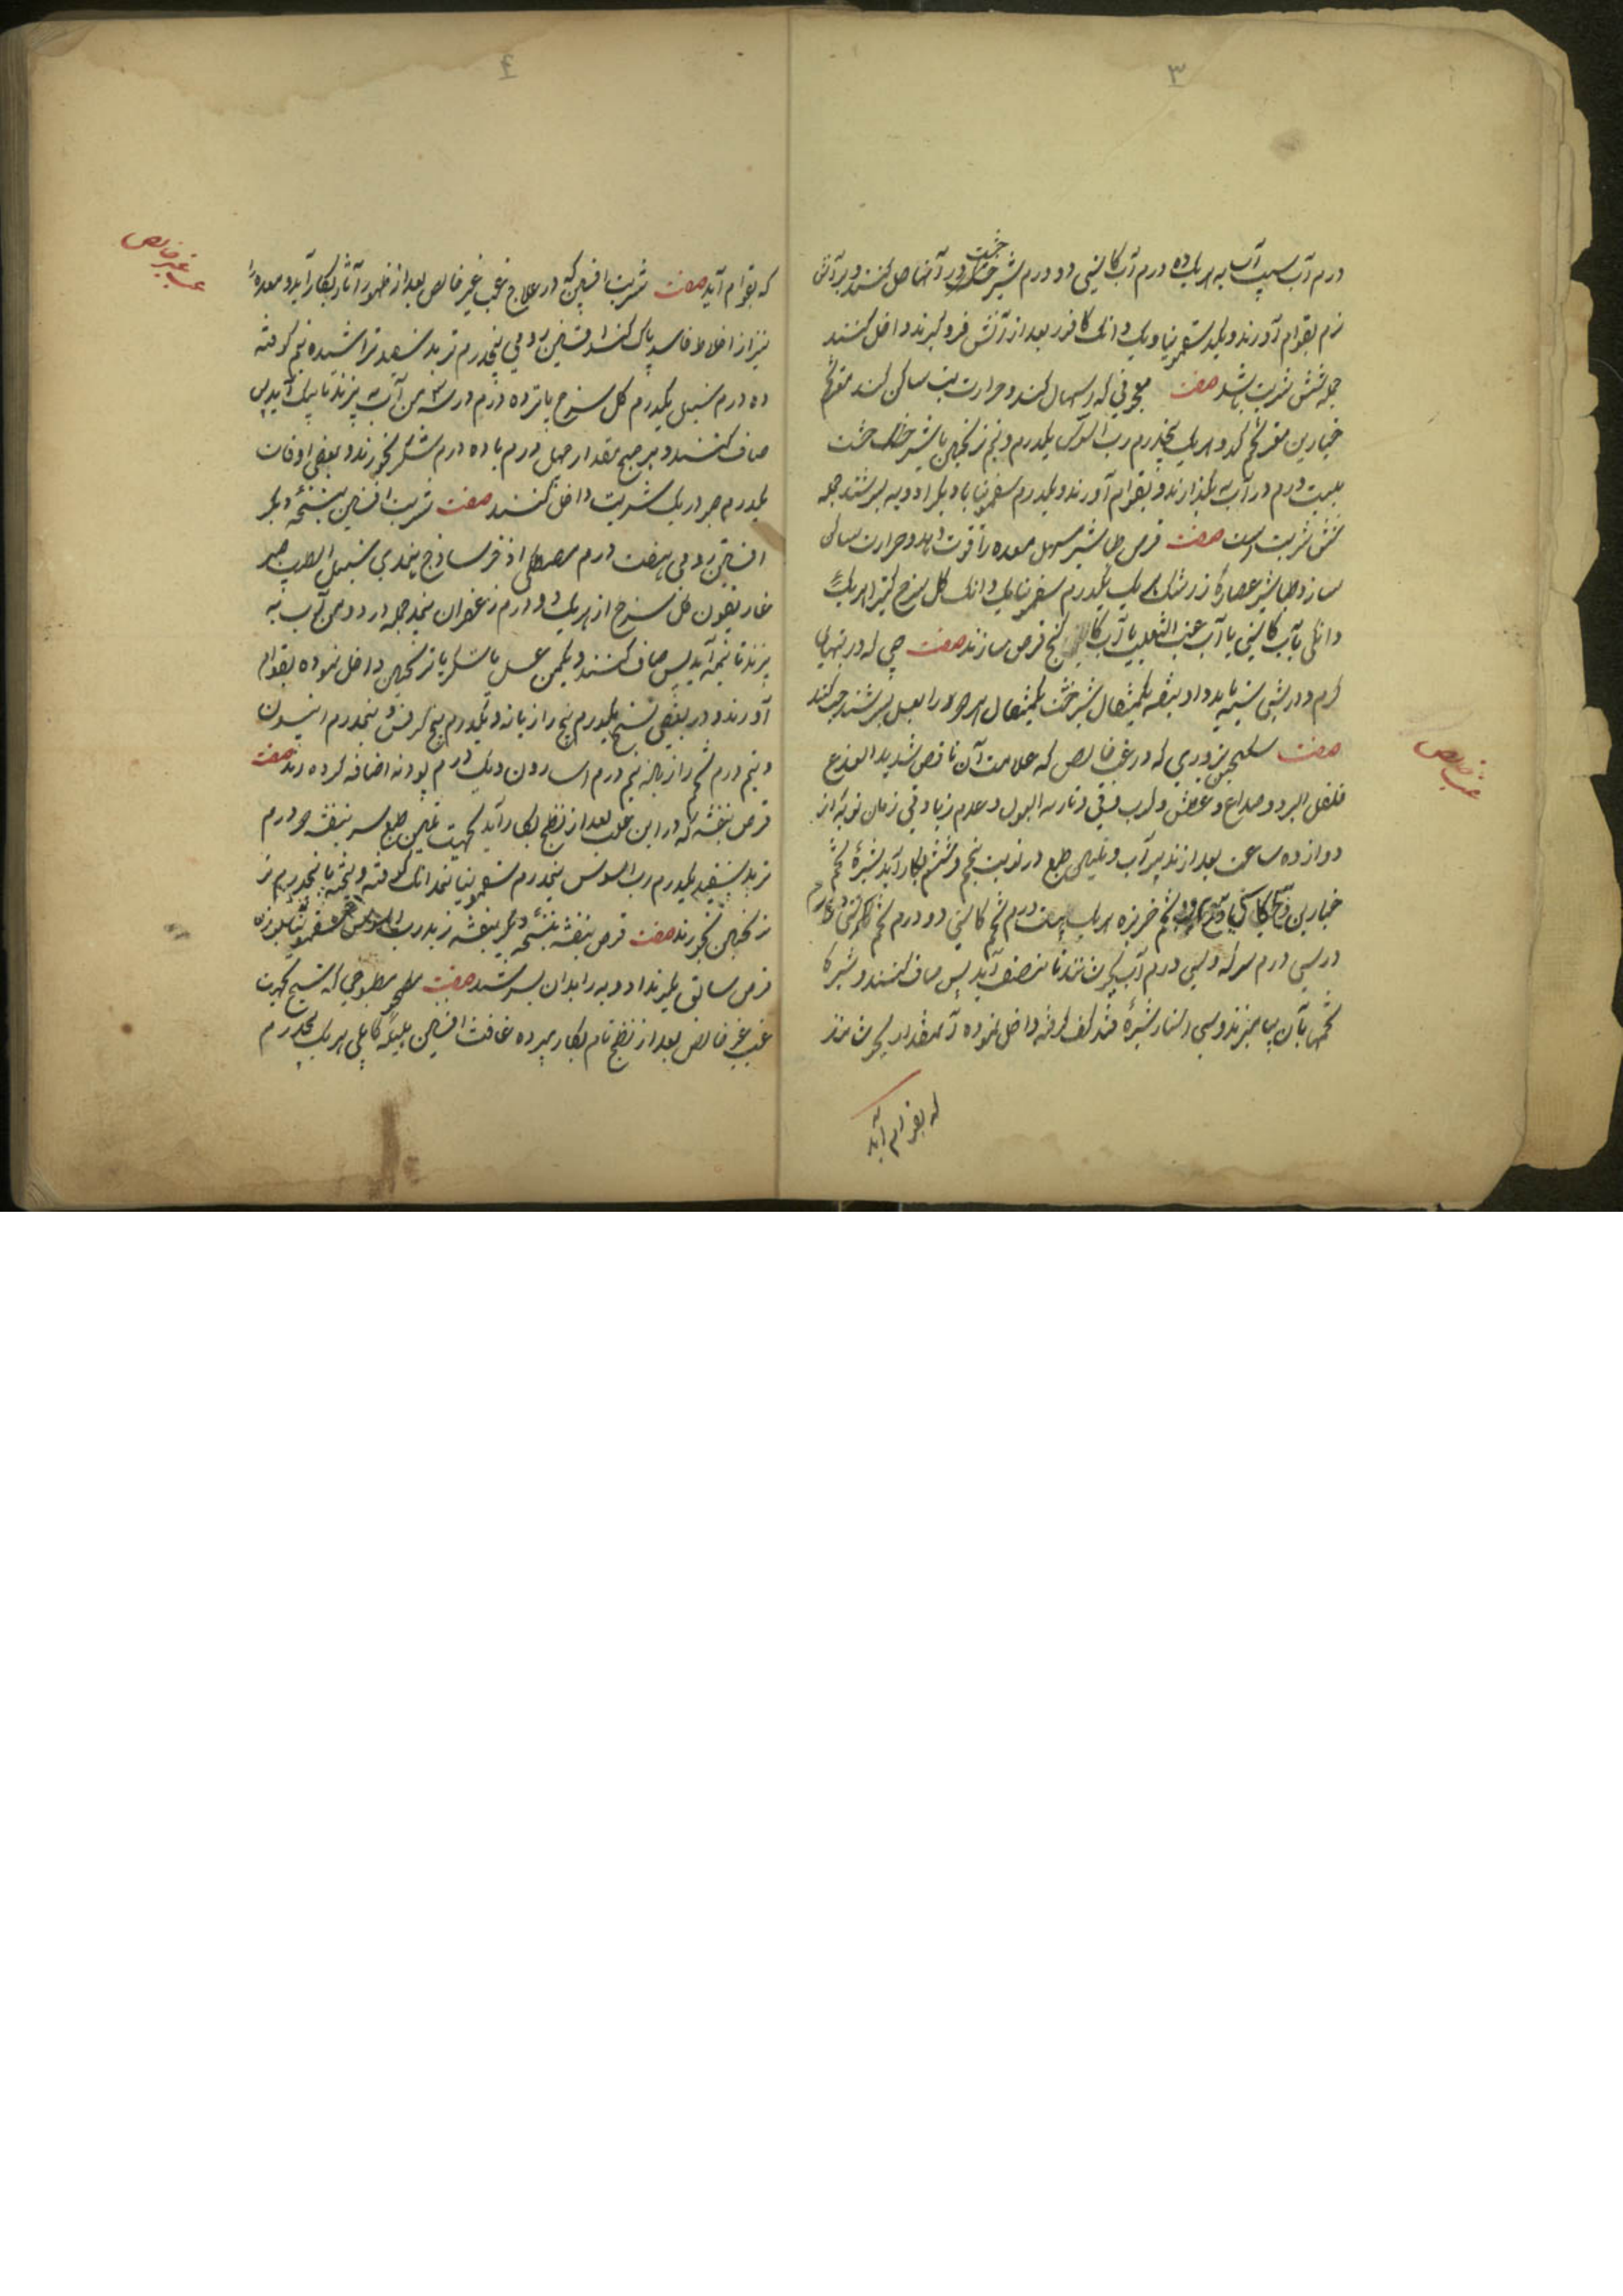 ۳
درم آب سیب آب به هریک ده درم آب کاسنی دو درم شیرخشت در آنها حل کنند و بر آتش
نرم بقوام آورند و یکدرم سقمونیا و یک دانک کافور بعد از آتش فرو گیرند داخل کنند
جمله شش شربت باشد صفت معجونی که اسهال کند و حرارت تب ساکن کند مغز تخم
خیارین مغز تخم کدو هریک پنجدرم رب السوس یکدرم و نیم ترنجبین یا شیر خشت
بیست درم در آب بگذارند و بقوام آورند و یکدرم سقمونیا با دیگر ادویه بسرشند جمله
شش شربت است صفت قرص طباشیر مسهل معده را قوت دهد و حرارت ساکن
سازد طباشیر عصاره زرشک هریک یکدرم سقمونیا یک دانک گل سرخ کتیرا هریک
دانکی بآب کاسنی یا آب عنب الثعلب یا آب کا کنج قرص سازند صفت حبی که در تبهای
گرم و درشتی سینه باید داد بنفشه یکمثقال شیرخشت یکمثقال هر دو را بعسل بسرشند حب کنند
صفت سکنجبین بزوری که در غب خالص که علامت آن ناقص شدید اللذع
قلیل البرد و صداع و عطش و کرب و قی و ناریه البول و عدم زیادتی زمان نوبه از
دوازده ساعت بعد از تدبیر آب و تلیین طبع در نوبت پنجم و ششم بکار آید شیره تخم
خیارین تخم خربزه هریک بیست درم تخم کاسنی دو درم تخم
در سی درم سرکه و سی درم آب بجوشانند تا بنصف آید پس صاف کنند و شیره
تخمها بآن بیامیزند و سی استار شیره قند کف گرفته داخل نموده آنمقدار بجوشانند
که بقوام آید
غب خالص
۴
که بقوام آید صفت شربت افسنتین که در علاج غب غیر خالص بعد از ظهور آثار بکار آید و معده را
نیز از اخلاط فاسد پاک کند افسنتین رومی پنجدرم تربد سفید تراشیده نیم کوفته
ده درم سنبل یکدرم گل سرخ پانزده درم در سه من آب بپزند تا بیک آید پس
صاف کنند و هر صبح مقدار چهل درم با ده درم شکر بخورند و بعضی اوقات
یکدرم صبر در یک شربت داخل کنند صفت شربت افسنتین بنسخه دیگر
افسنتین رومی هفت درم مصطکی اذخر ساذج هندی سنبل الطیب صبر
غاریقون گل سرخ از هریک دو درم زعفران نیمدرم جمله در دو من آب
بپزند تا نیمه آید پس صاف کنند و یکمن عسل یا شکر یا ترنجبین داخل نموده بقوام
آورند و در بعضی نسخ یکدرم بیخ رازیانه و یکدرم بیخ کرفس و نیمدرم انیسون
و نیم درم تخم رازیانه نیم درم اسارون و یک درم پودنه اضافه کرده اند صفت
قرص بنفشه که در این علت بعد از نضج بکار آید بجهت تلیین طبع بنفشه دو درم
تربد سفید یکدرم رب السوس نیمدرم سقمونیا نیمدانک کوفته و بیخته با پنجدرم
ترنجبین بخورند صفت قرص بنفشه بنسخه دیگر بنفشه تربد رب السوس سقمونیا بوزن
قرص سابق بگیرند ادویه را بدان بسرشند صفت مطبوخی که شیخ بجهت
غب غیر خالص بعد از نضج تام بکار میبرده غافث افسنتین هلیله کابلی هریک پنجدرم
غب غیر خالص